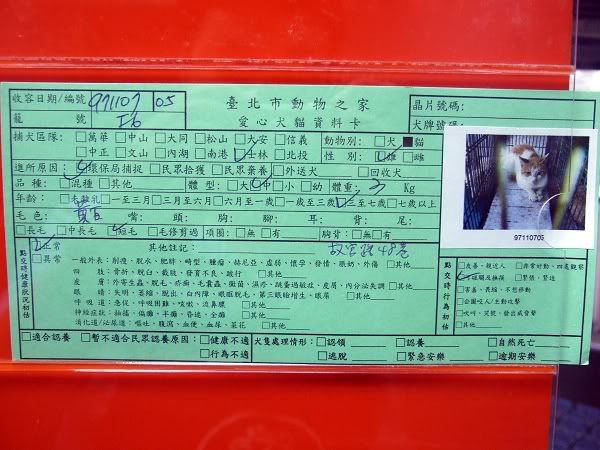 收容日期/編號 971107 05
籠 號 I6
臺北市動物之家
愛心犬貓資料卡
晶片號碼:
犬牌號碼:
捕犬區隊: □萬華 □中山 □大同 □松山 □大安 □信義
□中正 □文山 □內湖 □南港 □士林 □北投
動物別: □犬 ■貓
性 別: □雄 □雌
進所原因: □環保局捕捉 □民眾拾獲 □民眾棄養 □外送犬 □回收犬
品 種: □混種 □其他
體 型: □大 □中 □小 □幼 體重: 3 Kg
年齡: □未離乳 □一至三月 □三至六月 □六月至一歲 □一歲至三歲 □三至七歲 □七歲以上
毛 色: 黃白 嘴: 頭: 胸: 腳: 耳: 背: 尾:
□長毛 □中長毛 □短毛 □毛修剪過 項圈: □無 □有 胸背: □無 □有
點交時健康狀況初估
□正常
□異常
其他註記: 故宮路48巷
一般外表: 削瘦、脫水、肥胖、畸型、腫瘤、赫尼亞、虛弱、懷孕、發情、脹奶、外傷 □其他
四 肢: 骨折、脫臼、截肢、發育不良、跛行 □其他
皮 膚: 外寄生蟲、脫毛、疥癬、毛囊蟲、黴菌、濕疹、跳蚤過敏症、皮屑、內分泌失調 □其他
眼 睛: 失明、萎縮、脫出、白內障、眼瞼脫毛、第三眼瞼增生、眼屎 □其他
呼 吸 道: 急促、呼吸困難、咳嗽、流鼻膿 □其他
神經症狀: 抽搐、偏癱、半癱、昏迷、全癱 □其他
消化道/泌尿道: 嘔吐、腹瀉、血便、血尿、菜花 □其他
點交時行為初估
□友善、親近人 □非常好動、四處觀察
□緊張、緊迫
□害羞、畏縮、不想移動
□企圖咬人/主動攻擊
□吠叫、哭號、發出威脅聲
□其他
97110705
□適合認養 □暫不適合民眾認養原因: □健康不適
□行為不適
犬隻處理情形: □認領 □認養 □自然死亡
□逃脫 □緊急安樂 □逾期安樂